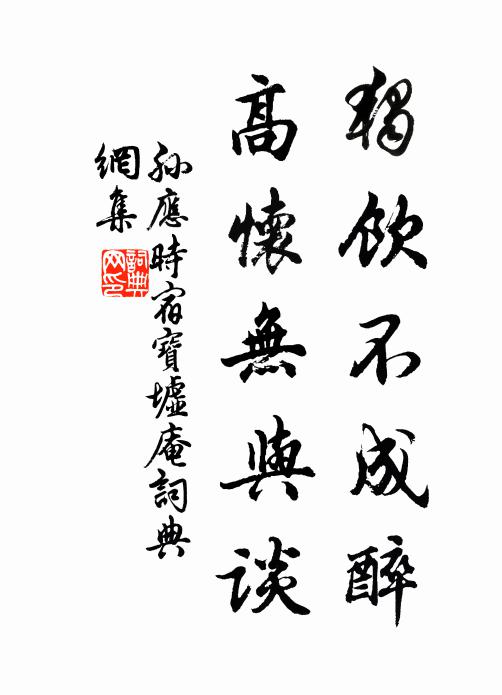 獨飲不成醉
高懷無與談
孫應時宿寶墟庵詞典
網集
詞典
网印